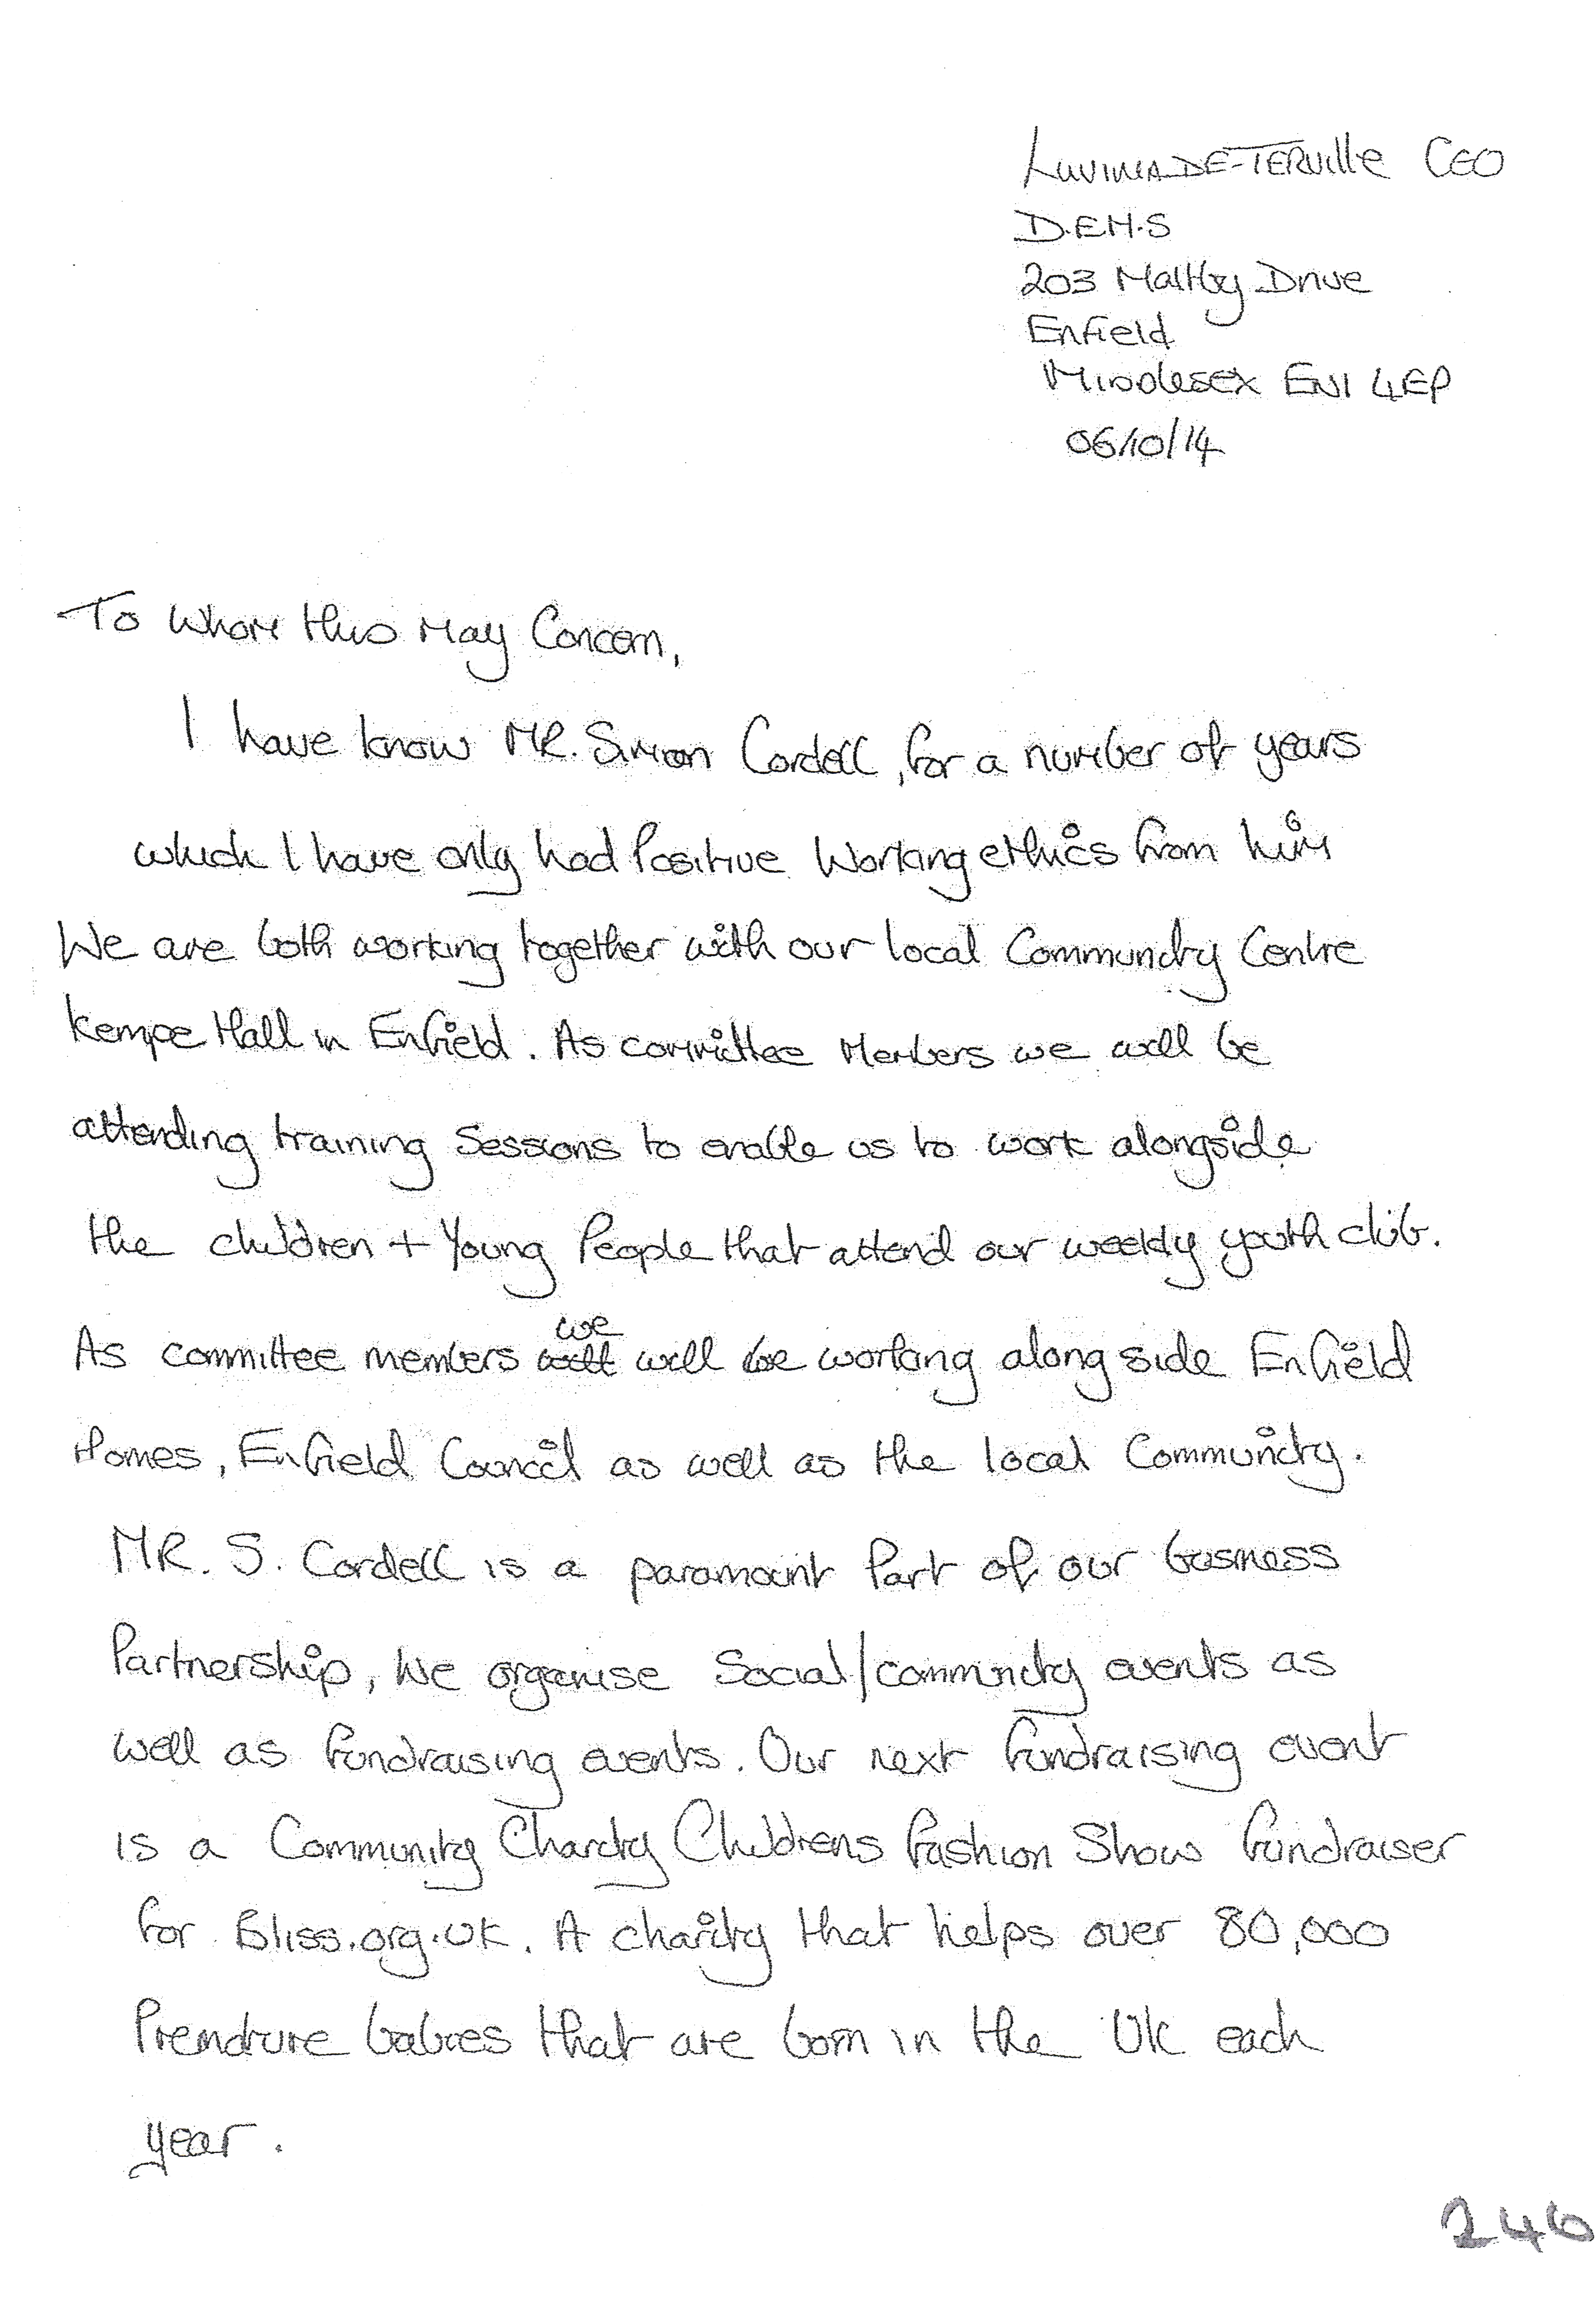 LUVINIA DE-TERVILLE CEO
D.E.M.S
203 Maltby Drive
Enfield
Middlesex EN1 4EP
06/10/14
To Whom this May Concern,
I have know MR. Simon Cordell, for a number of years
which I have only had Positive Working ethics from him
We are both working together with our local Community Centre
Kempe Hall in Enfield. As committee Members we will be
attending training Sessions to enable us to work alongside
the children + Young People that attend our weekly youth club.
we
As committee members will will be working along side Enfield
Homes, Enfield Council as well as the local Community.
MR. S. Cordell is a paramount Part of our business
Partnership, We organise Social/community events as
well as fundraising events. Our next fundraising event
is a Community Charity Childrens Fashion Show fundraiser
for Bliss.org.uk. A charity that helps over 80,000
Premature babies that are born in the UK each
year.
246